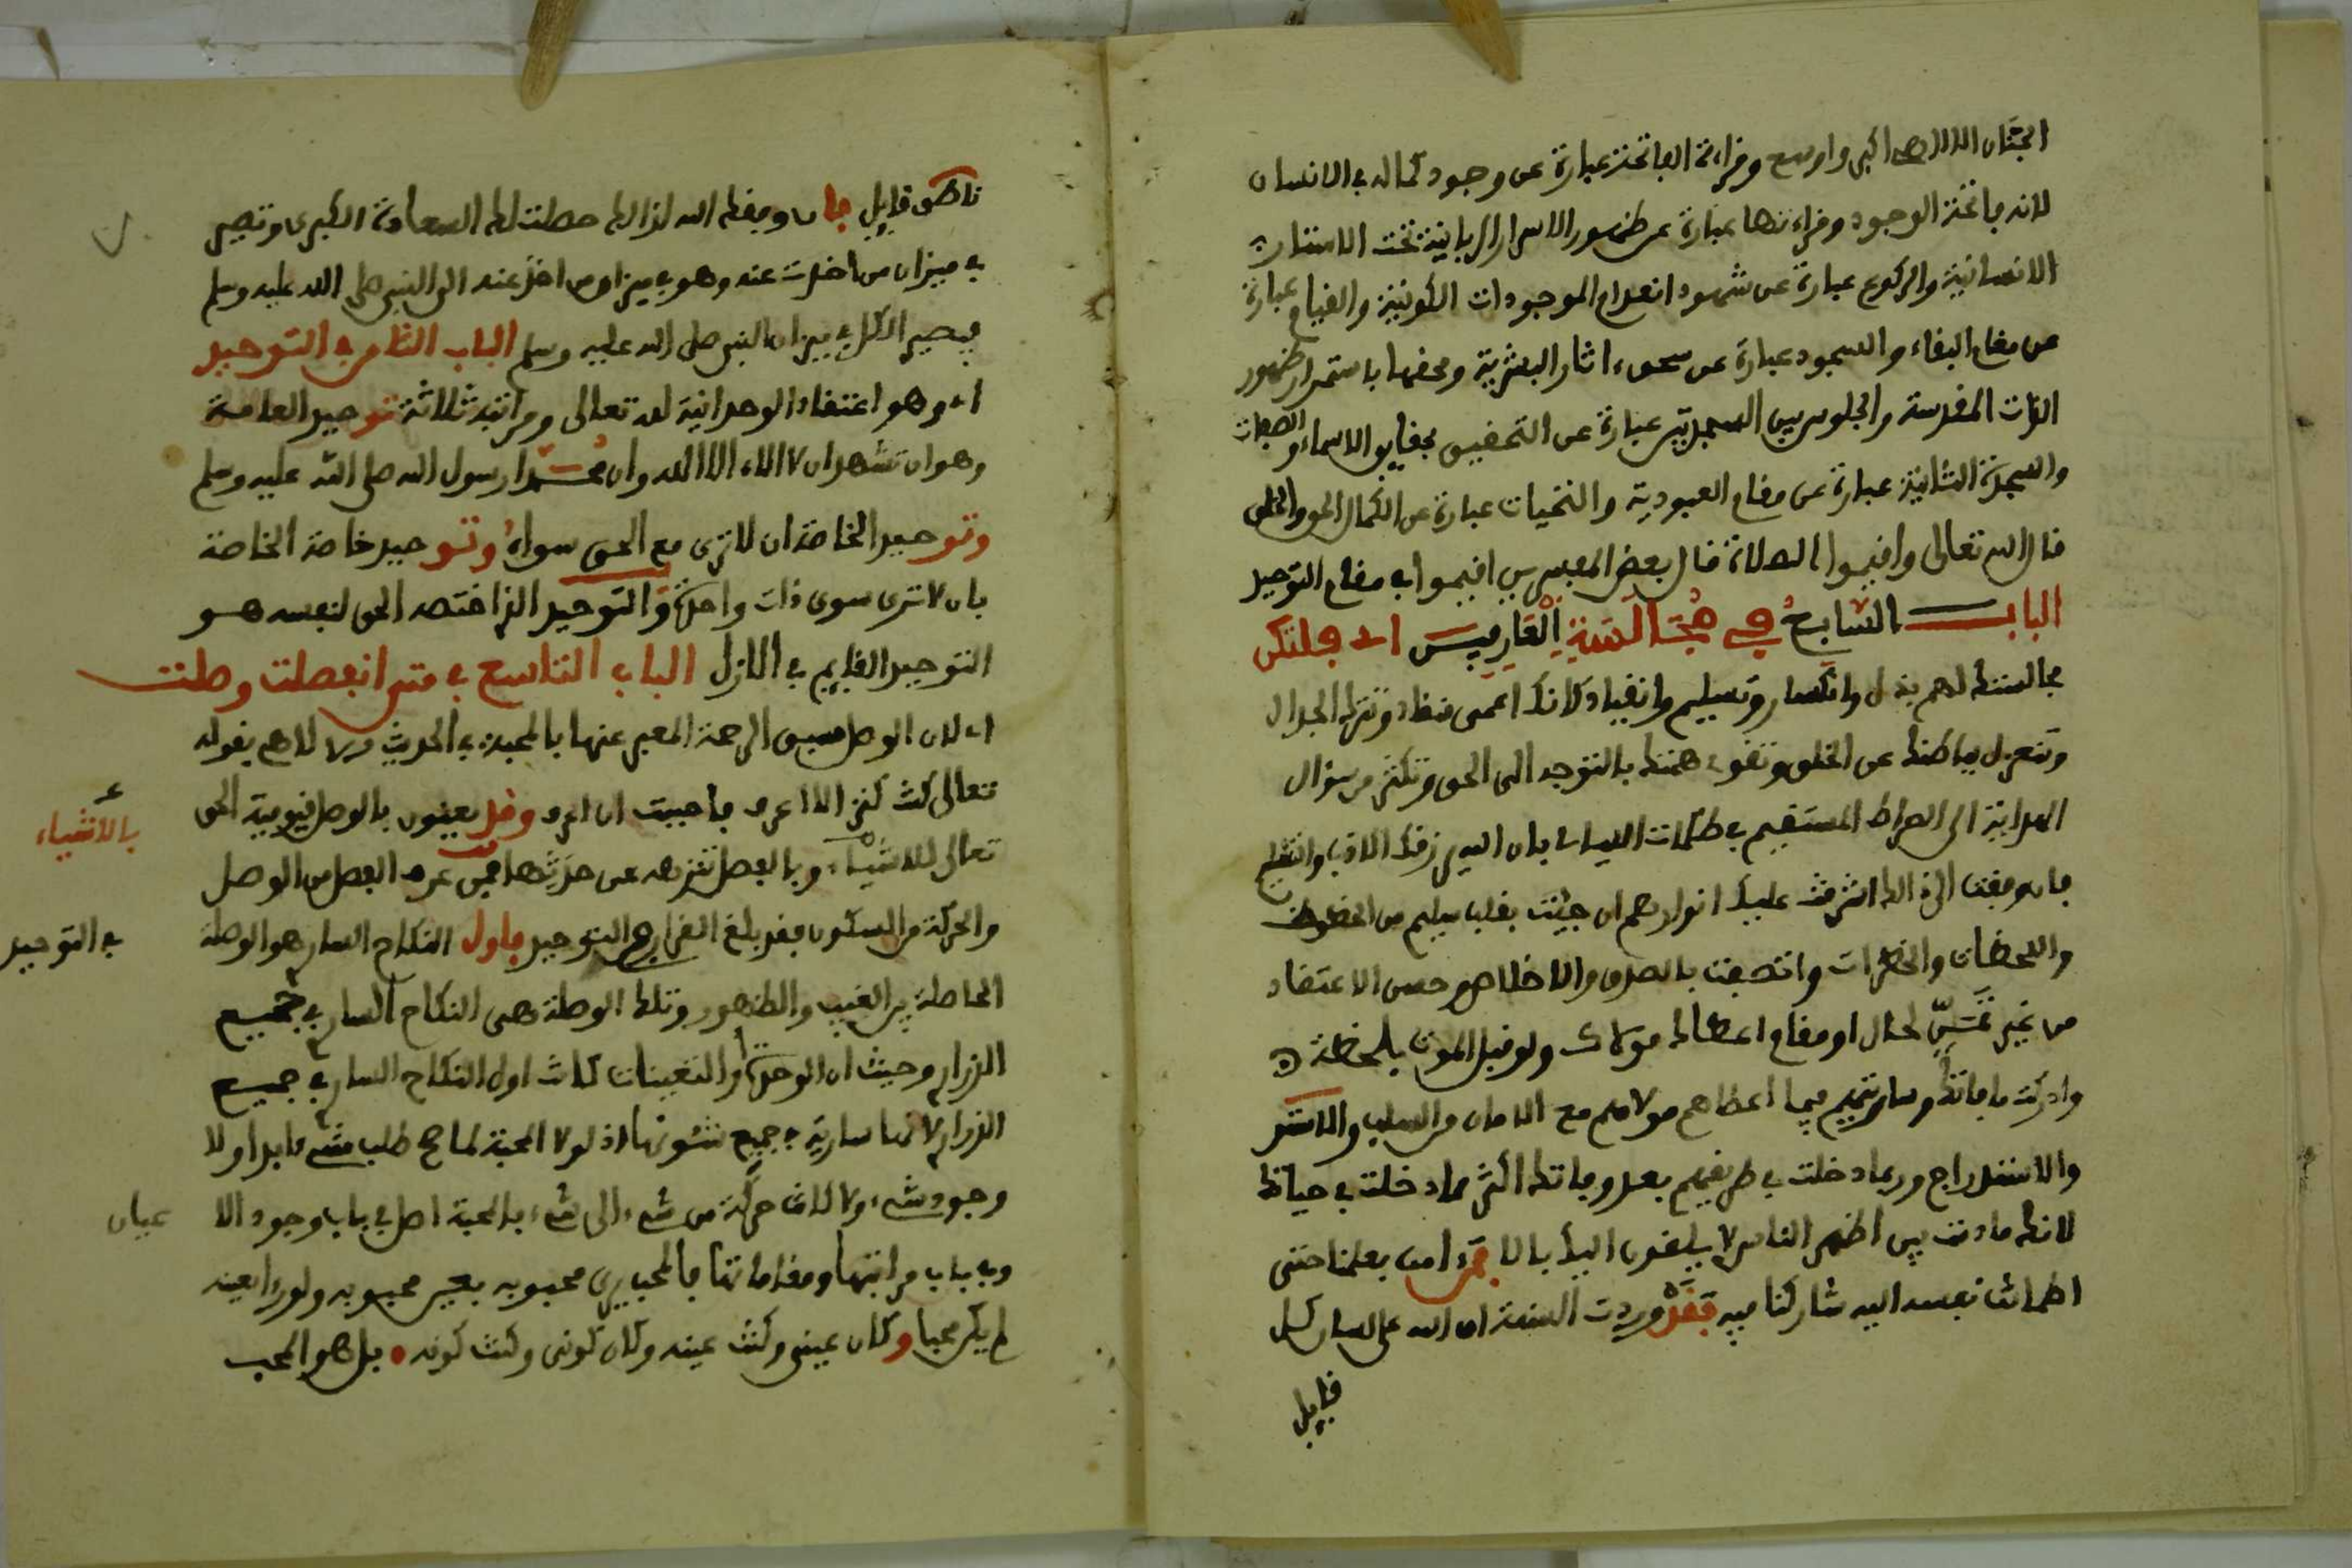 الجنان الا الله اكبر واوسع وقراءة الفاتحة عبارة عن وجود كماله في الانسان
لانه فاتحة الوجود وقراءتها عبارة عن ظهور الاسرار الربانية تحت الاستار
الانسانية والركوع عبارة عن شهود انعدام الموجودات الكونية والقيام عبارة
عن مقام البقاء والسجود عبارة عن سحق اثار البشرية ومحقها باستمرار ظهور
الذات المقدسة والجلوس بين السجدتين عبارة عن التحقيق بحقايق الاسماء والصفات
والسجدة الثانية عبارة عن مقام العبودية والتحيات عبارة عن الكمال الحق والخلقي
قال الله تعالى واقيموا الصلاة قال بعض المفسرين اقيموا في مقام التوحيد
الباب السابع في مجالسة العارفين اي فلتكن
مجالستك لهم بذل وانكسار وتسليم وانقياد كانك اعمى منقاد وتترك الجدال
وتنعزل بباطنك عن الخلق وتقوي همتك بالتوجه الى الحق وتكثر من سؤال
الهداية الى الصراط المستقيم في ظلمات الليالي بان الله يرزقك الادب والتسليم
فان وفقت الى ذالك اشرقت عليك انوارهم ان جئت بقلب سليم من الحظوظ
واللحظات والخطرات واتصفت بالصدق والاخلاص وحسن الاعتقاد
من غير تمنّ لحال او مقام اعطاك مولاك ولو قبل الموت بلحظة
وادركت ما فاتك وسار بهم فيما اعطاهم مولاهم مع الامان من السلب والاستتر
والاستدراج وربما دخلت في طريقهم بعد وفاتك اكثر مما دخلت في حياتك
لانك ما دمت بين اظهر الناس لا يلقون اليك بالا فمن امن بعلمنا حتى
اطمانت نفسه اليه شاركنا فيه فقد وردت السنة ان الله على لسان كل
قايل
ناطق قايل فان وفقك الله لذالك حصلت لك السعادة الكبرى وتصير
في ميزان من اخذت عنه وهو في ميزان من اخذ عنه الى النبي صلى الله عليه وسلم
فيصير الكل في ميزان النبي صلى الله عليه وسلم الباب الثامن في التوحيد
اي وهو اعتقاد الوحدانية لله تعالى ومراتبه ثلاثة توحيد العامة
وهو ان تشهد ان لا الاه الا الله وان محمدا رسول الله صلى الله عليه وسلم
وتوحيد الخاصة ان لا ترى مع الحق سواه وتوحيد خاصة الخاصة
بان لا ترى سوى ذات واحدة والتوحيد الذي اختصه الحق لنفسه هو
التوحيد القايم في الازل الباب التاسع في متى انفصلت وصلت
اي لان الوصل سبق الرحمة المعبر عنها بالمحبة في الحديث القدسي بقوله
تعالى كنت كنزا لا اعرف فاحببت ان اعرف وقد يعنون بالوصل قيومية الحق
بالاشياء
تعالى للاشياء وبالفصل تنزهه عن حدثها فمن عرف الفصل من الوصل
والحركة من السكون فقد بلغ القرار في التوحيد فاول النكاح الساري هو الوصلة
في التوحيد
الحاصلة بين الغيب والظهور وتلك الوصلة هي النكاح الساري في جميع
الذراري وحيث ان الوحدة والتعينات كانت اول النكاح الساري في جميع
الذراري لانها سارية في جميع شئونها اذ لولا المحبة لما صح طلب شيء ابدا ولا
وجود شيء ولا كانت حركة من شيء الى شيء فالمحبة اصل في باب وجود الا
عيان
وفي باب مراتبها ومقاماتها فالمحب يرى محبوبه بعين محبوبه ولو راه بعينه
لم يكن محبا وكان عيني وكنت عينه وكان كوني وكنت كونه • بل هو المحب